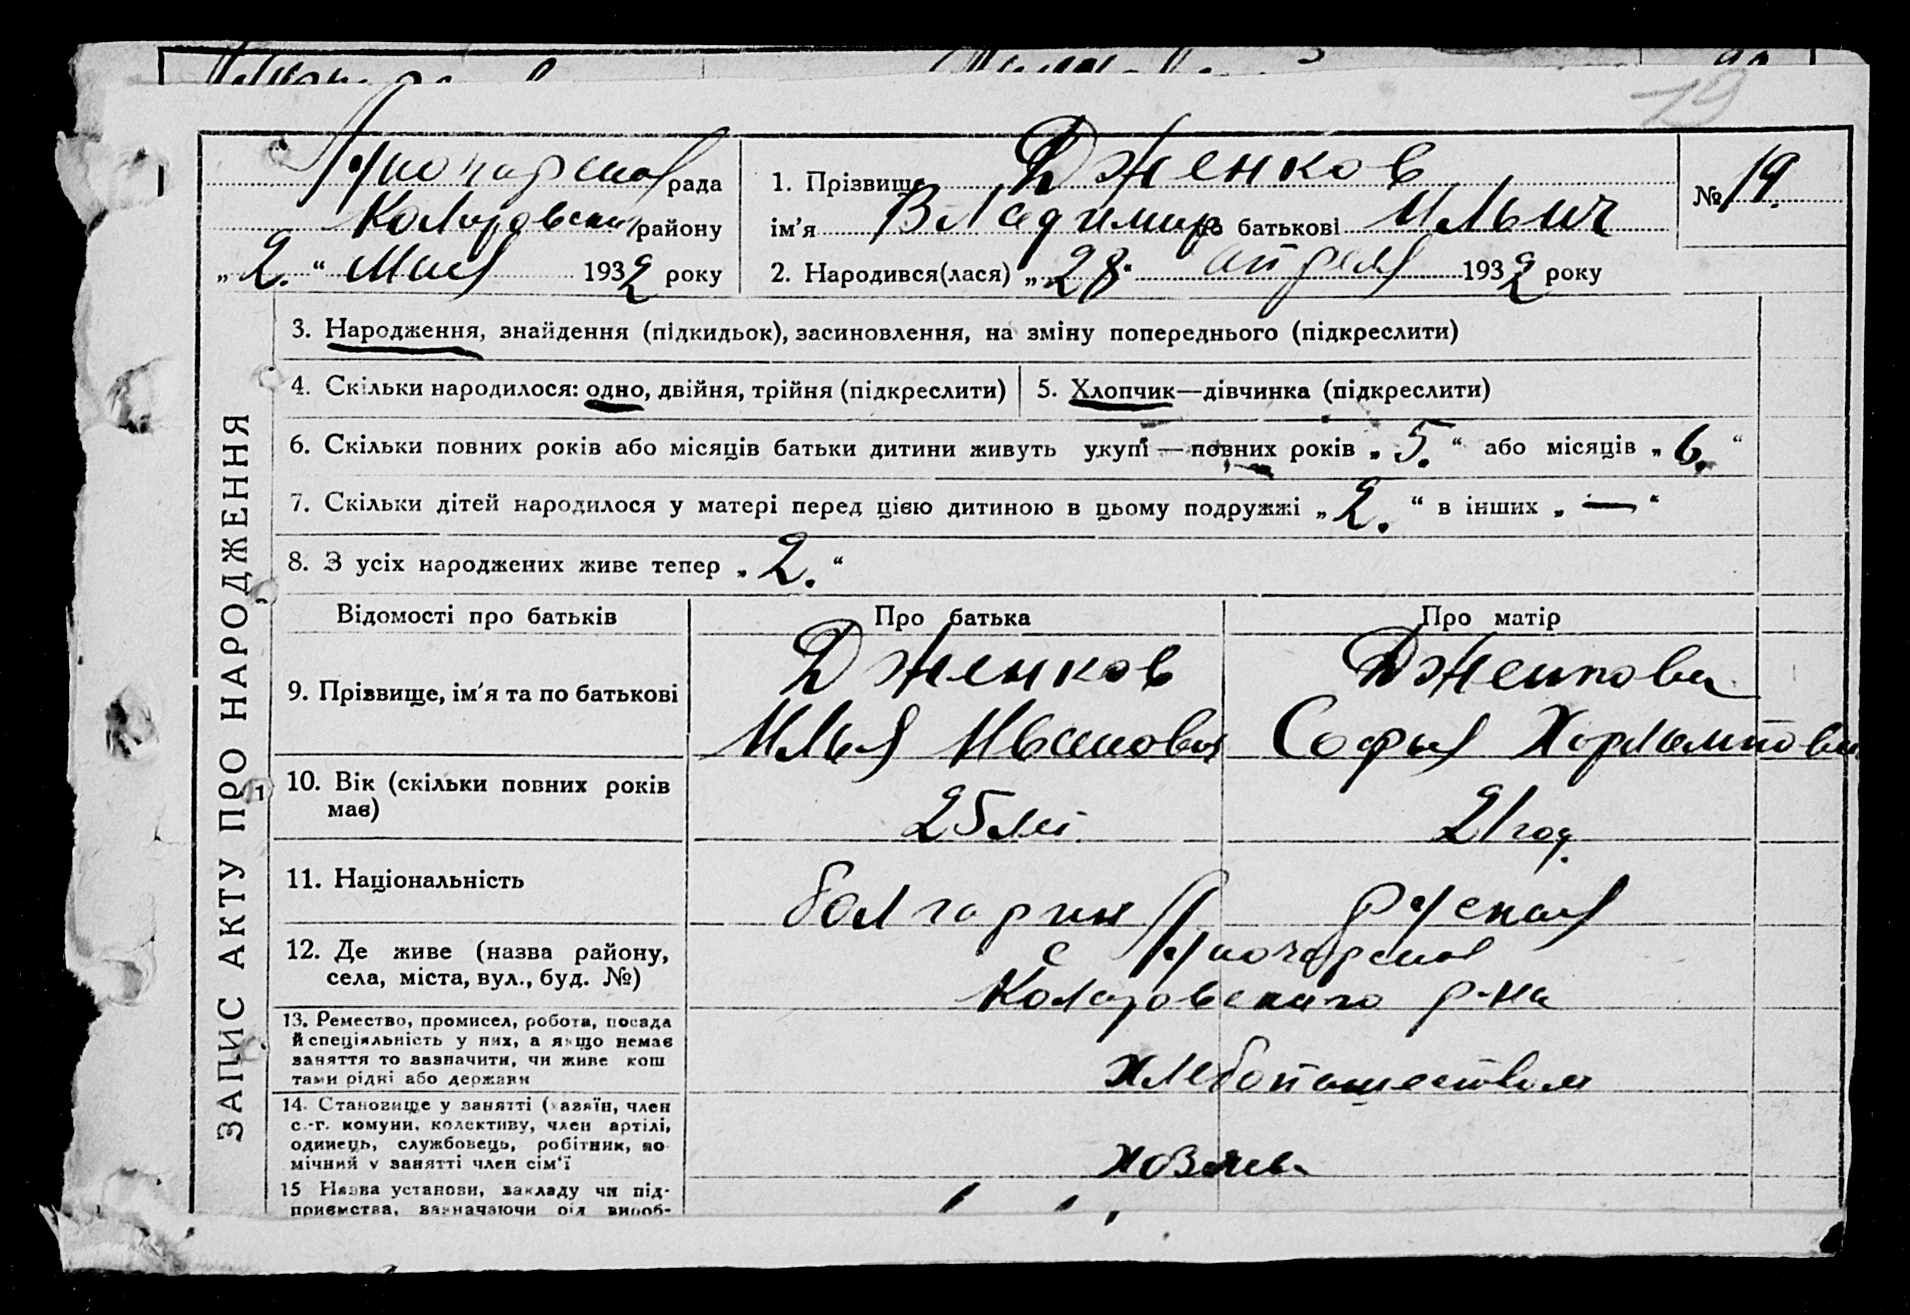 19
рада
1. Прізвище Дженков
№ 19.
Коларовский району
ім'я Владимир по батькові Ильич
„2.“ Мая 1932 року
2. Народився(лася) „28. апреля 1932 року
ЗАПИС АКТУ ПРО НАРОДЖЕННЯ
3. Народження, знайдення (підкидьок), засиновлення, на зміну попереднього (підкреслити)
4. Скільки народилося: одно, двійня, трійня (підкреслити)
5. Хлопчик—дівчинка (підкреслити)
6. Скільки повних років або місяців батьки дитини живуть укупі — повних років „5.“ або місяців „6.“
7. Скільки дітей народилося у матері перед цією дитиною в цьому подружжі „2.“ в інших „—“
8. З усіх народжених живе тепер „2.“
Відомості про батьків
Про батька
Про матір
9. Прізвище, ім'я та по батькові
Дженков
Илья Иванович
Дженкова
Софья Харламповна
10. Вік (скільки повних років
має)
25 лет
21 год.
11. Національність
болгарин
руская
12. Де живе (назва району,
села, міста, вул., буд. №)
с
Коларовского р-на
13. Ремество, промисел, робота, посада
й спеціяльність у них, а якщо немає
заняття то зазначити, чи живе кош
тами рідні або держави
хлебопашеством
14. Становище у занятті (хазяїн, член
с.-г. комуни, колективу, член артілі,
одинець, службовець, робітник, по
мічний у занятті член сім'ї
хозяева
15 Назва установи, закладу чи під-
приємства, зазначаючи рід вироб-